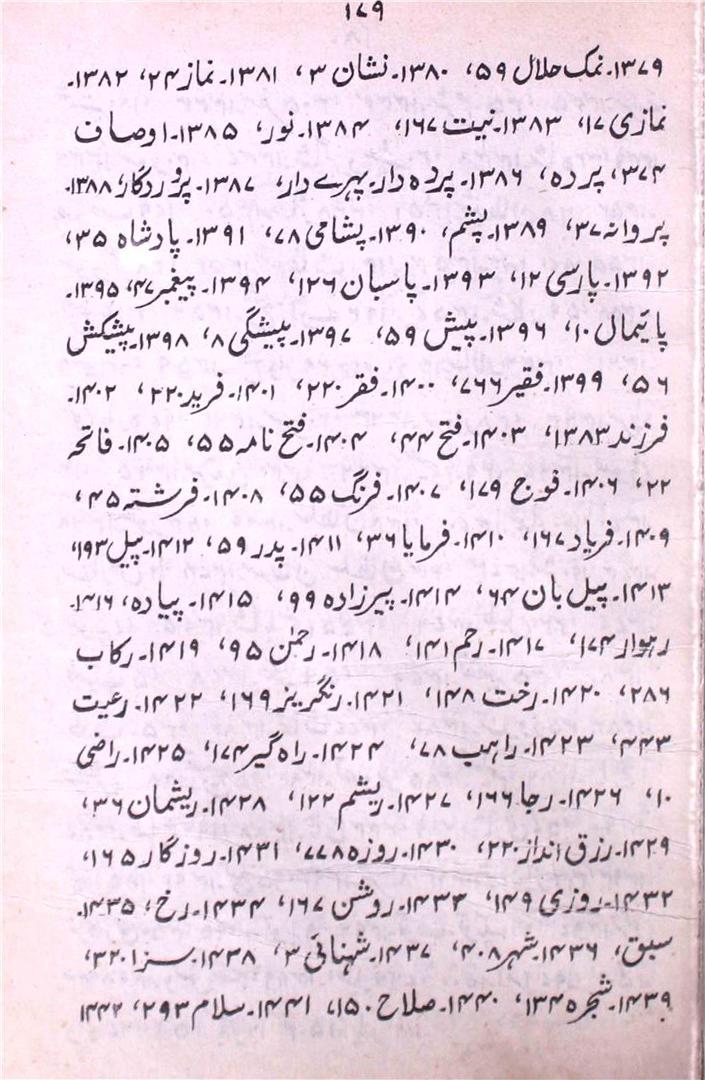 ۱۷۹
۱۳۷۹۔نمک حلال ۵۹، ۱۳۸۰۔نشان ۳، ۱۳۸۱۔نماز ۲۴، ۱۳۸۲۔
نمازی ۱۷، ۱۳۸۳۔نیت ۱۶۷، ۱۳۸۴۔نور، ۱۳۸۵۔اوصاف
۳۷۴، پردہ، ۱۳۸۶۔پردہ دار۔پہرے دار، ۱۳۸۷۔پروردگار، ۱۳۸۸۔
پروانہ ۳۷، ۱۳۸۹۔پشم، ۱۳۹۰۔پشامی ۷۸، ۱۳۹۱۔پادشاہ ۳۵،
۱۳۹۲۔پارسی ۱۲، ۱۳۹۳۔پاسبان ۱۲۶، ۱۳۹۴۔پیغمبر ۴۷، ۱۳۹۵۔
پائیمال ۱۰، ۱۳۹۶۔پیش ۵۹، ۱۳۹۷۔پیشگی ۸، ۱۳۹۸۔پیشکش
۵۶، ۱۳۹۹۔فقیر ۷۶۶، ۱۴۰۰۔فقر ۲۲۰، ۱۴۰۱۔فرید ۲۲۰، ۱۴۰۲۔
فرزند ۱۳۸۳، ۱۴۰۳۔فتح ۴۴، ۱۴۰۴۔فتح نامہ ۵۵، ۱۴۰۵۔فاتحہ
۲۲، ۱۴۰۶۔فوج ۱۷۹، ۱۴۰۷۔فرنگ ۵۵، ۱۴۰۸۔فرشتہ ۴۵،
۱۴۰۹۔فریاد ۱۶۷، ۱۴۱۰۔فرمایا ۳۶، ۱۴۱۱۔پدر ۵۹، ۱۴۱۲۔پیل ۱۹۳،
۱۴۱۳۔پیل بان ۶۴، ۱۴۱۴۔پیرزادہ ۹۹، ۱۴۱۵۔پیادہ، ۱۴۱۶۔
رہوار ۱۷۴، ۱۴۱۷۔رحم ۱۴۱، ۱۴۱۸۔رحمٰن ۹۵، ۱۴۱۹۔رکاب
۲۸۶، ۱۴۲۰۔رخت ۱۴۸، ۱۴۲۱۔رنگریز ۱۶۹، ۱۴۲۲۔رعیت
۴۴۳، ۱۴۲۳۔راہب ۷۸، ۱۴۲۴۔راہ گیر ۱۷۴، ۱۴۲۵۔راضی
۱۰، ۱۴۲۶۔رجا ۱۶۶، ۱۴۲۷۔ریشم ۱۲۲، ۱۴۲۸۔ریشمان ۳۶،
۱۴۲۹۔رزق انداز ۲۲۰، ۱۴۳۰۔روزہ ۷۷۸، ۱۴۳۱۔روزگار ۱۶۵،
۱۴۳۲۔روزی ۱۴۹، ۱۴۳۳۔روشن ۱۶۷، ۱۴۳۴۔رخ، ۱۴۳۵۔
سبق، ۱۴۳۶۔شہر ۴۰۸، ۱۴۳۷۔شہنائی ۳، ۱۴۳۸۔سزا ۳۲۰،
۱۴۳۹۔شجرہ ۱۳۴، ۱۴۴۰۔صلاح ۱۵۰، ۱۴۴۱۔سلام ۲۹۳، ۱۴۴۲